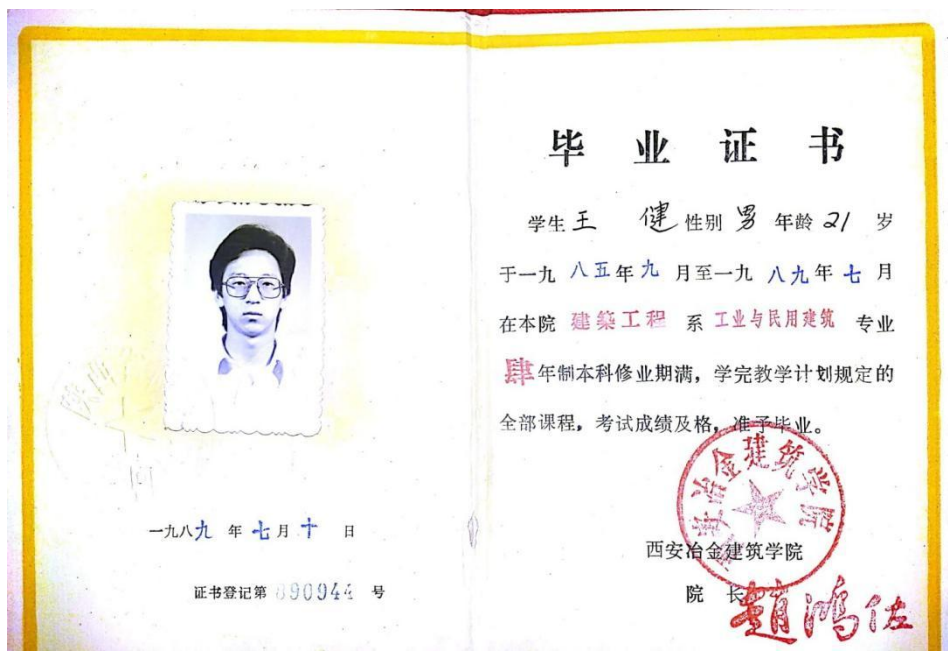 一九八九 年 七月 十 日
证书登记第 890944 号
毕 业 证 书
学生 王 健 性别 男 年龄 21 岁
于一九 八五 年 九 月至一九 八九 年 七 月
在本院 建築工程 系 工业与民用建筑 专业
肆 年制本科修业期满，学完教学计划规定的
全部课程，考试成绩及格，准予毕业。
西安冶金建筑学院
西安冶金建筑学院
院 长
趙鴻佐